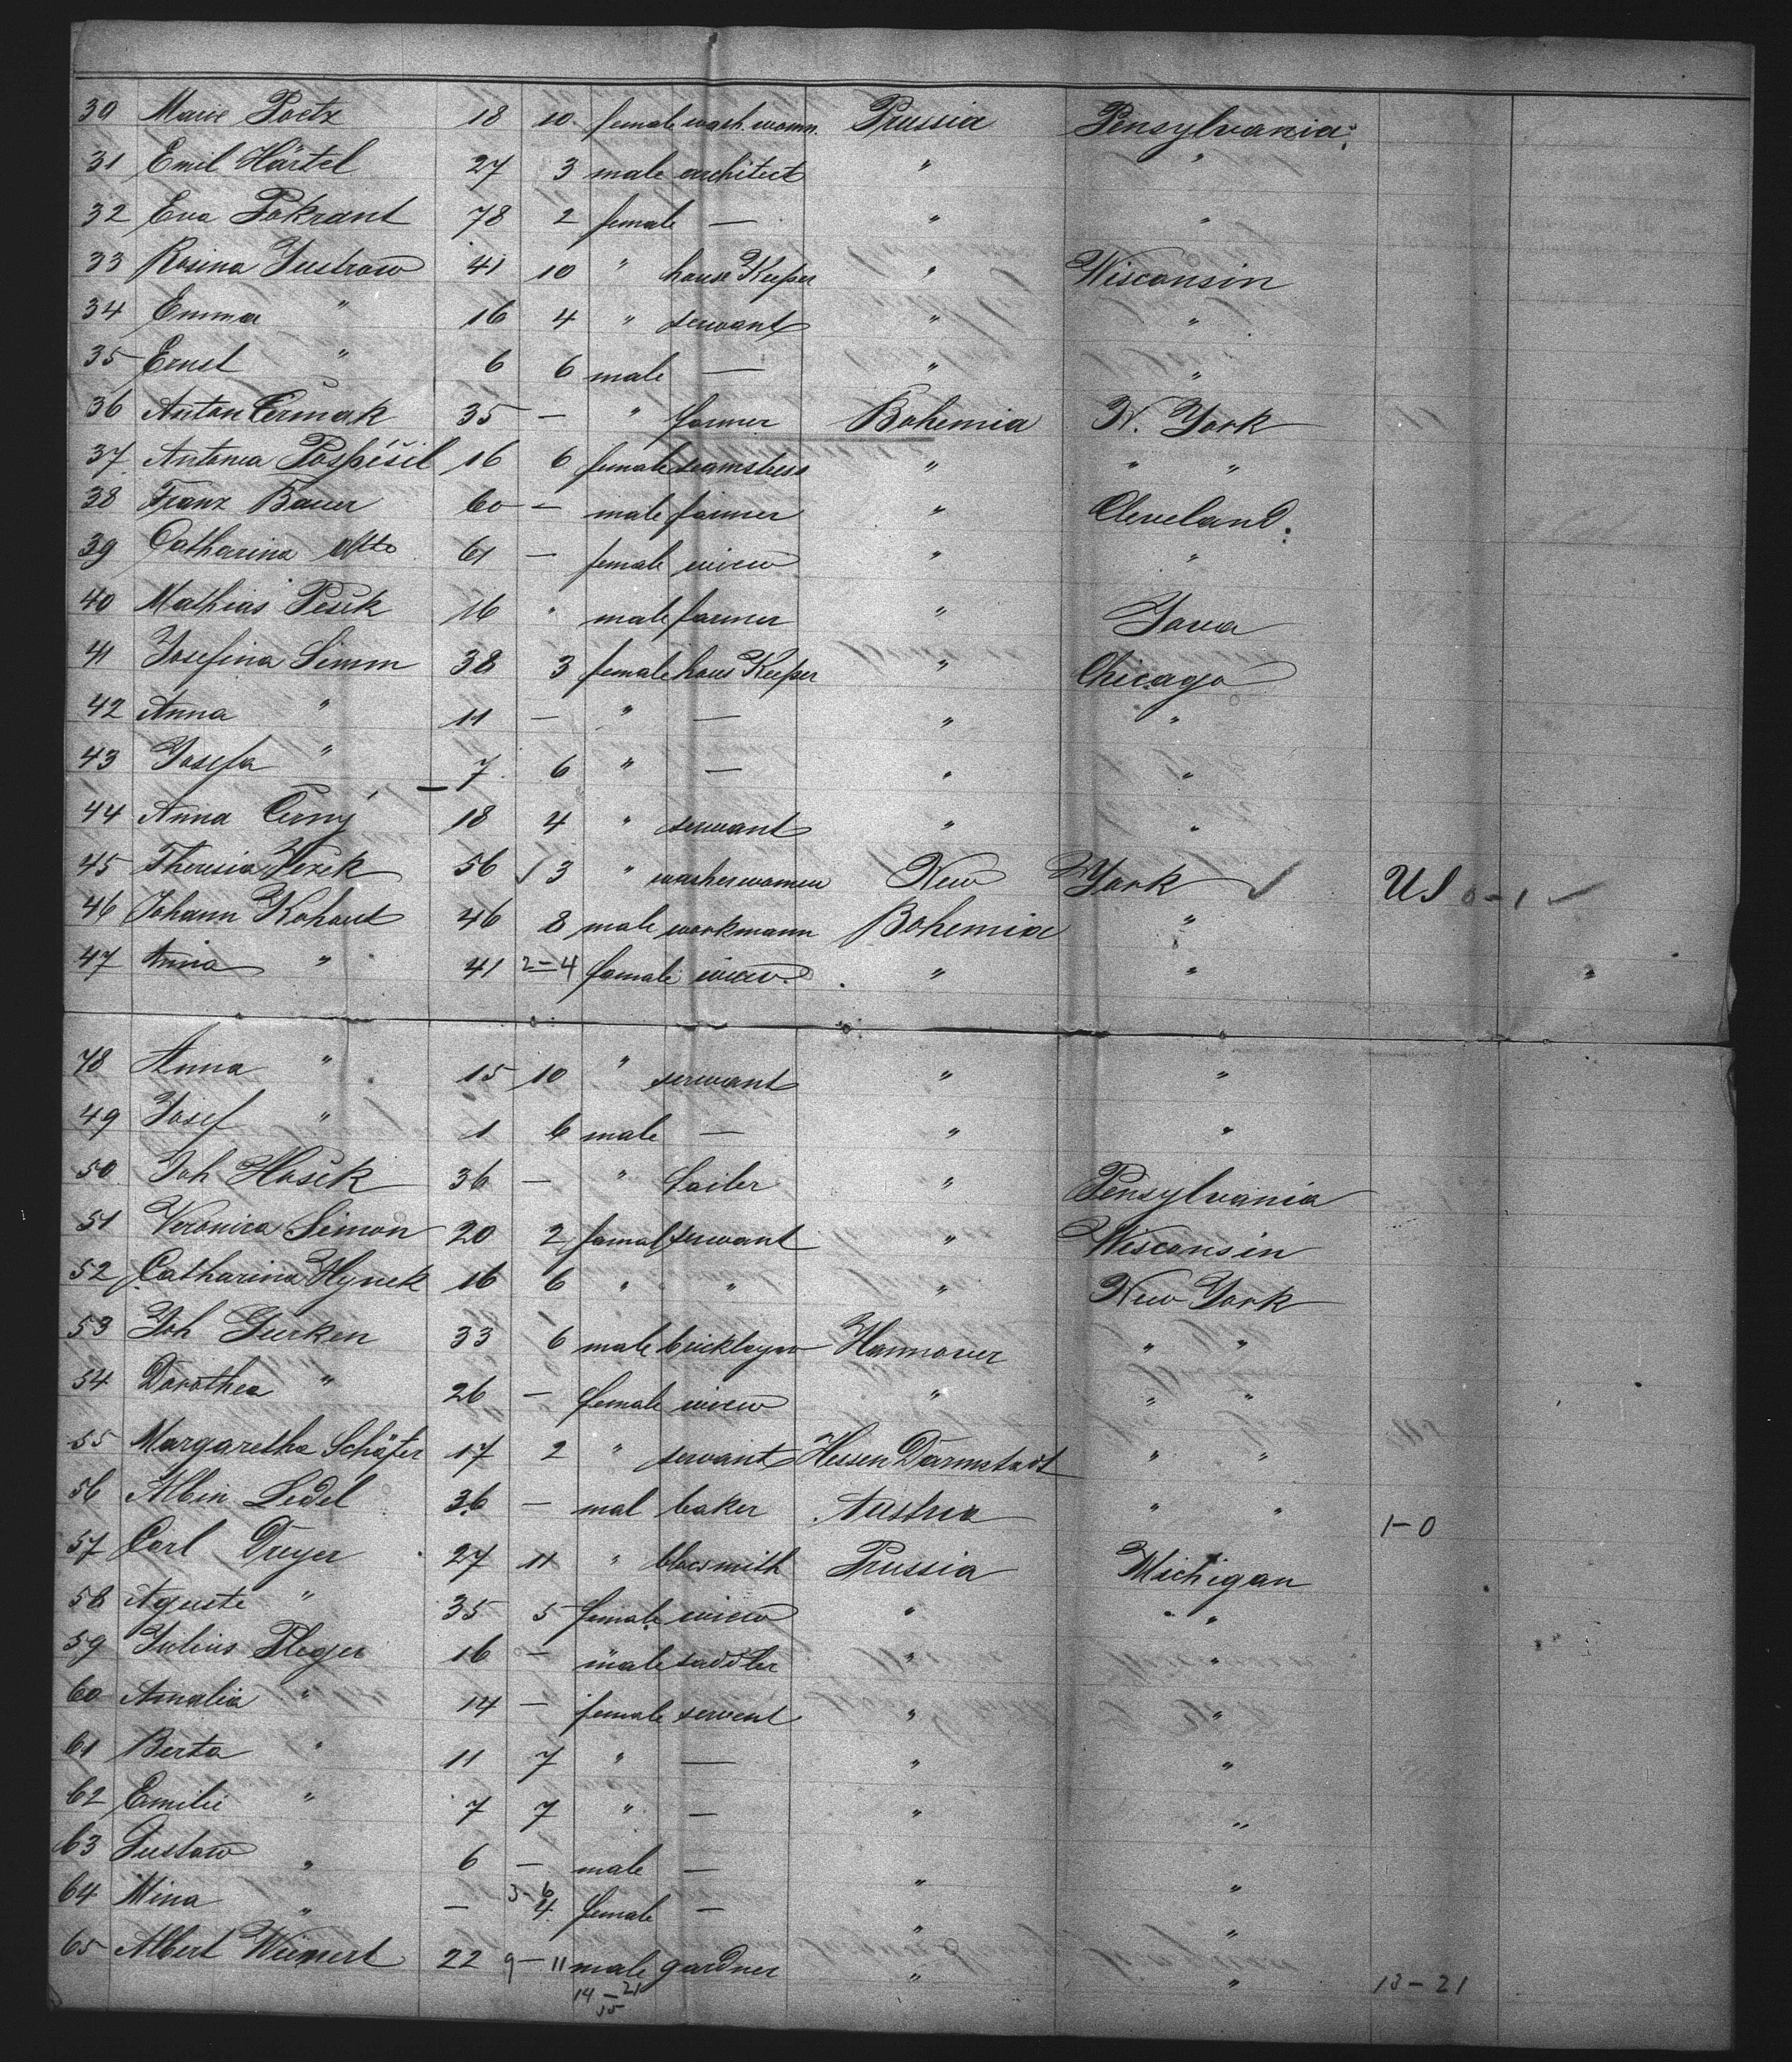 30 Marie Poetz 18 10 female wash.womn. Prussia Pensylvania
31 Emil Härtel 27 3 male architect " "
32 Eva Pokrant 78 2 female — " "
33 Rosina Gustrow 41 10 " house Keeper " Wisconsin
34 Emma " 16 4 " servant " "
35 Ernst " 6 6 male — " "
36 Anton Čermak 35 — " farmer Bohemia N. York
37 Antonia Pospíšil 16 6 female seamstress " " "
38 Franz Bauer 60 — male farmer " Cleveland
39 Catharina Otto 61 — female wiew " "
40 Mathias Pešek 16 " male farmer " Iova
41 Josefina Simm 38 3 female hous Keeper " Chicago
42 Anna " 11 — " — " "
43 Josefa " 7 6 " — " "
44 Anna Černý 18 4 " servant " "
45 Theresia 56 3 " washerwomen New York US 0-1
46 Johann Kohout 46 8 male workmann Bohemia "
47 Anna " 41 2-4 female wiew " " "
48 Anna " 15 10 " servant " "
49 Josef " 1 6 male — " "
50 Joh Hašek 36 — " tailer " Pensylvania
51 Veronica Simon 20 2 femal servant " Wisconsin
52 Catharina Hynek 16 6 " " " New York
53 Joh Gerken 33 6 male bricklayer Hannover " "
54 Dorothea " 26 — female wiew " " "
55 Margaretha Schäfer 17 2 " servant Hessen Darmstadt " "
56 Albin Ledel 36 — mal baker Austria " " 1-0
57 Carl Dreyer 27 11 " blacsmith Prussia Michigan
58 Aguste " 35 5 female wiew " " "
59 Julius Pleger 16 — male saddler " "
60 Amalia " 14 — female servent " "
61 Berta " 11 7 " — " "
62 Emilie " 7 7 " — " "
63 Gustaw " 6 — male — " "
64 Mina " — 3-6 4 female — " "
65 Albert Wiemert 22 9-11 male gardner " " 13-21
14-21